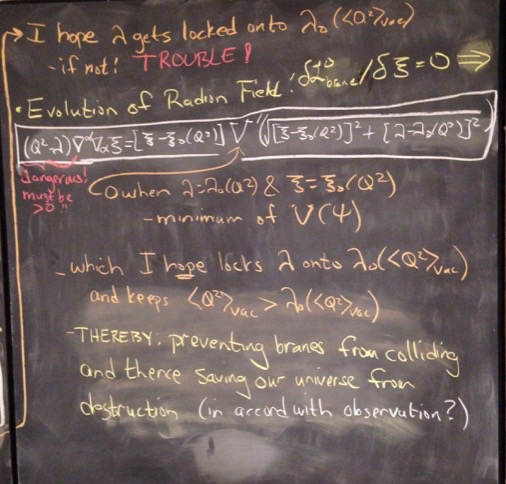 I hope λ gets locked onto λ₀(⟨Q²⟩vac)
- if not! TROUBLE!
• Evolution of Radion Field: δL⁰brane/δξ = 0 ⇒
(Q²-λ)∇^α∇_αξ = [ξ-ξ₀(Q²)] V'(√[ξ-ξ₀(Q²)]²+[λ-λ₀(Q²)]²
dangerous! must be >0
0 when λ=λ₀(Q²) & ξ=ξ₀(Q²)
- minimum of V(Ψ)
- which I hope locks λ onto λ₀(⟨Q²⟩vac)
and keeps ⟨Q²⟩vac > λ₀(⟨Q²⟩vac)
- THEREBY, preventing branes from colliding
and thence saving our universe from
destruction (in accord with observation?)